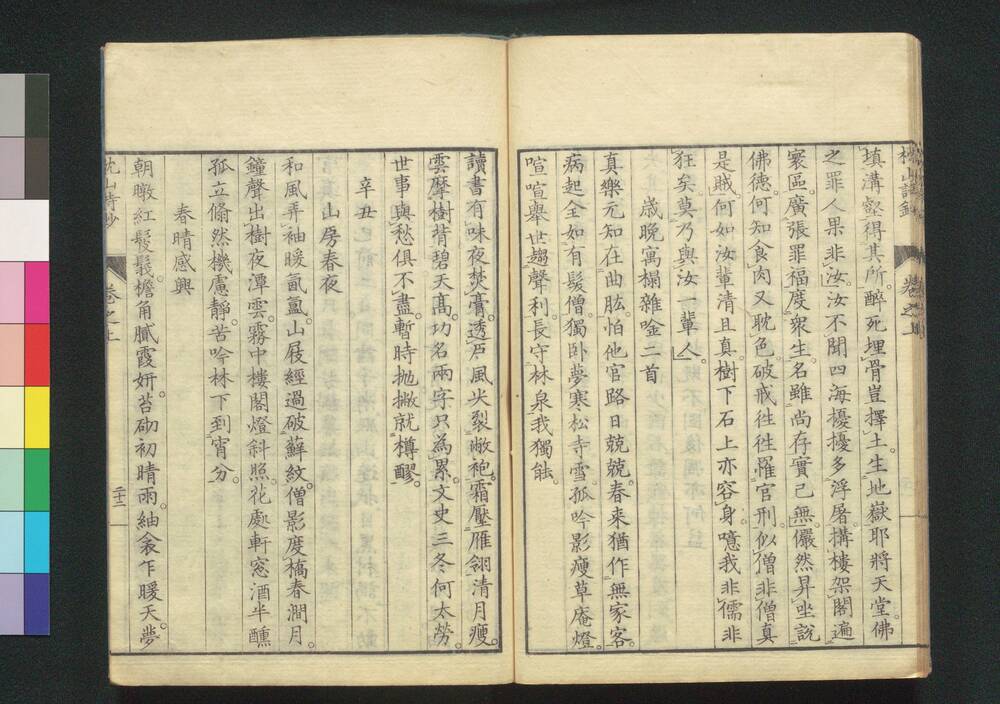 填溝壑得其所。醉死埋骨豈擇土。生地獄耶將天堂。佛
之罪人果非汝。汝不聞四海擾擾多浮屠。搆樓架閣遍
寰區。廣張罪福度衆生。名雖尚存實已無。儼然昇坐說
佛德。何知食肉又耽色。破戒往往罹官刑。似僧非僧真
是賊。何如汝輩清且真。樹下石上亦容身。噫我非儒非
狂矣。莫乃與汝一輩人。
歳晚寓榻雜唫二首
真樂元知在曲肱。怕他官路日兢兢。春来猶作無家客。
病起全如有髮僧。獨卧夢寒松寺雪。孤吟影瘦草庵燈。
喧喧舉世趨聲利。長守林泉我獨能。
讀書有味夜焚膏。透戸風尖裂敝袍。霜壓雁翎清月瘦。
雲摩樹背碧天高。功名兩字只為累。文史三冬何太勞。
世事與愁俱不盡。暫時抛撇就樽醪。
辛丑
山房春夜
和風弄袖暖氤氳。山屐經過破蘚紋。僧影度橋春澗月。
鐘聲出樹夜潭雲。霧中樓閣燈斜照。花處軒窓酒半醺
孤立翛然機慮靜。苦吟林下到宵分。
春晴感興
朝暾紅髪鬖。檐角膩霞妍。苔砌初晴雨。紬衾乍暖天。夢
枕山詩鈔
卷之上
二十二